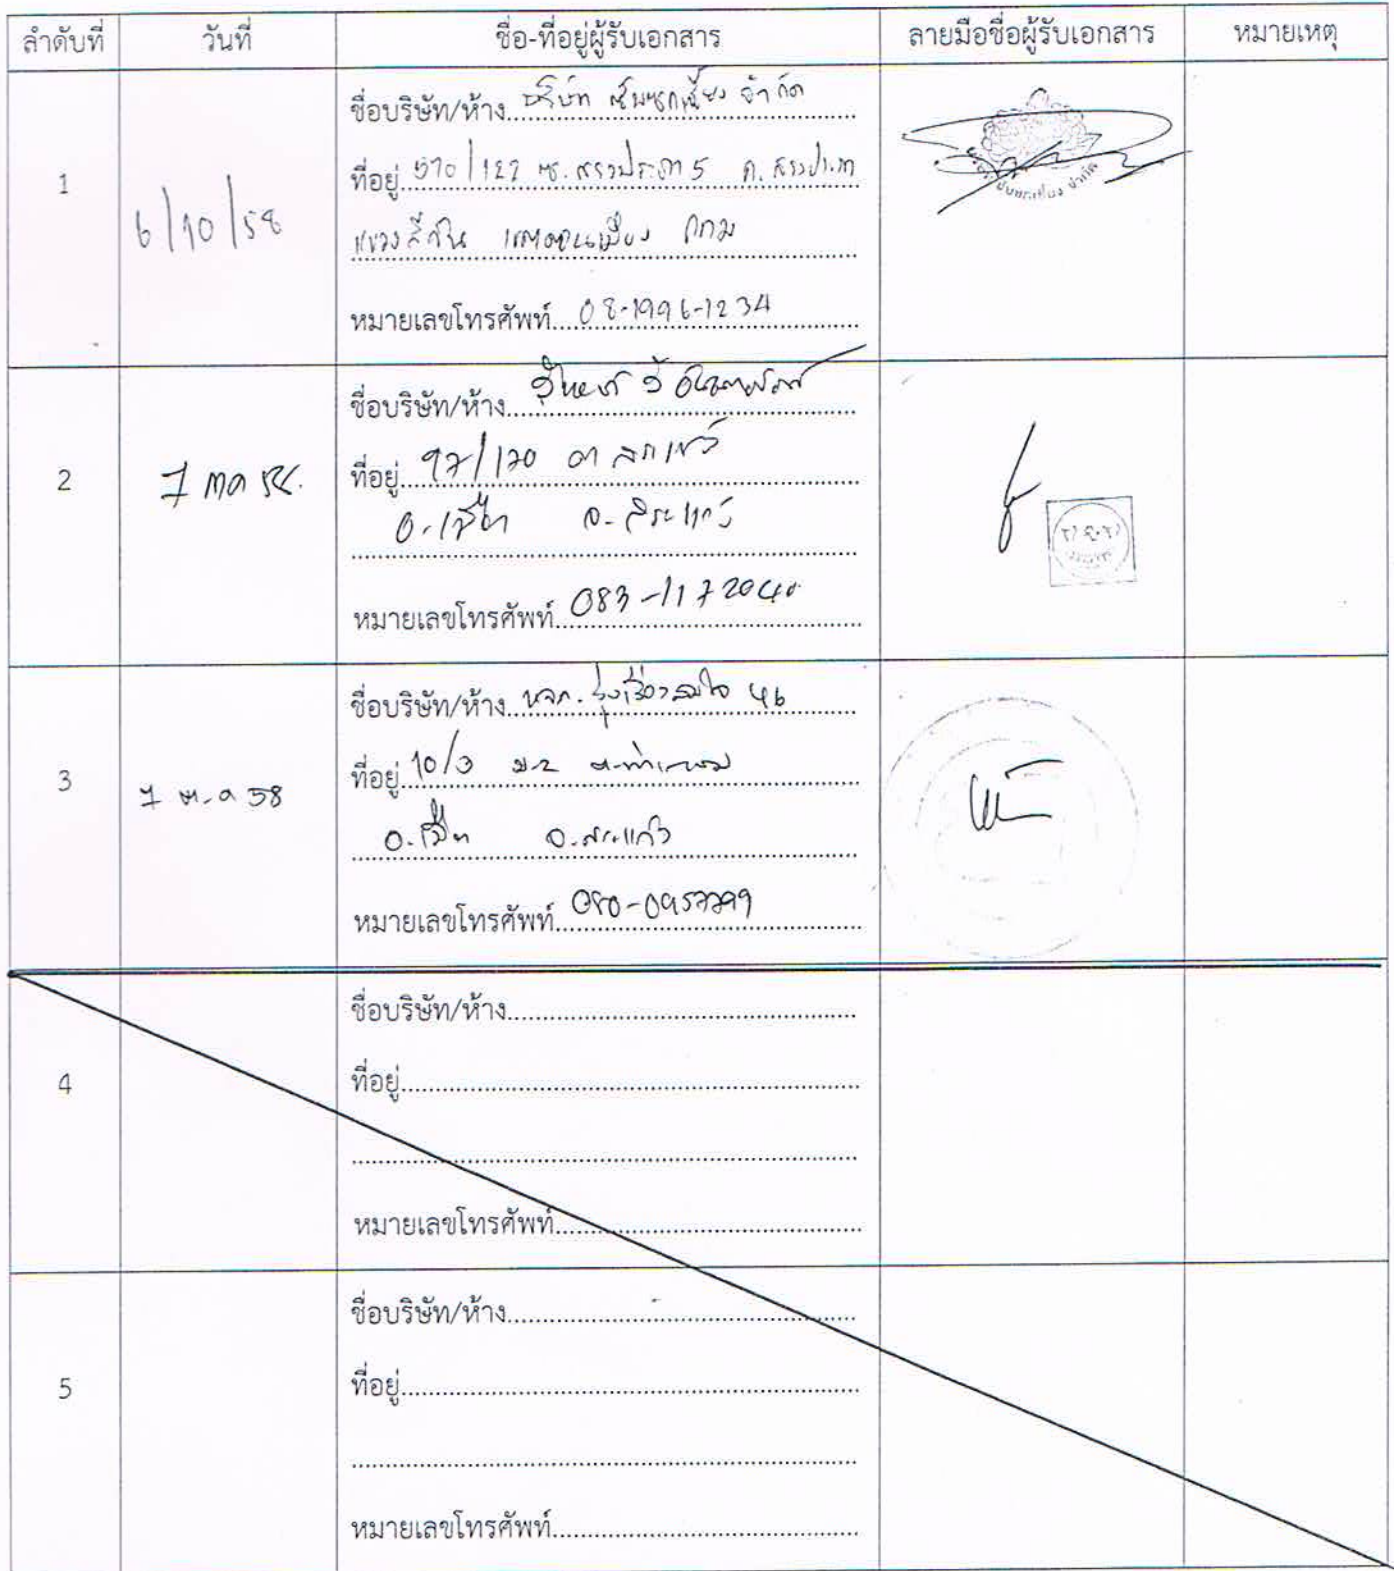 ลำดับที่ วันที่ ชื่อ-ที่อยู่ผู้รับเอกสาร ลายมือชื่อผู้รับเอกสาร หมายเหตุ
1
6/10/58
ชื่อบริษัท/ห้าง บริษัท จำกัด
ที่อยู่ 570/122 ซ.สรงประภา 5 ถ.สรงประภา
แขวงสีกัน เขตดอนเมือง กทม
หมายเลขโทรศัพท์ 08-1996-1234
2
7 ตค 58.
ชื่อบริษัท/ห้าง
ที่อยู่ 97/120
อ.เมือง จ.สระแก้ว
หมายเลขโทรศัพท์ 083-1172040
3
7 ต.ค 58
ชื่อบริษัท/ห้าง หจก. รุ่งเรืองสมใจ 46
ที่อยู่ 10/3 ม.2 ต.ท่าเกษม
อ.เมือง จ.สระแก้ว
หมายเลขโทรศัพท์
4
ชื่อบริษัท/ห้าง
ที่อยู่
หมายเลขโทรศัพท์
5
ชื่อบริษัท/ห้าง
ที่อยู่
หมายเลขโทรศัพท์